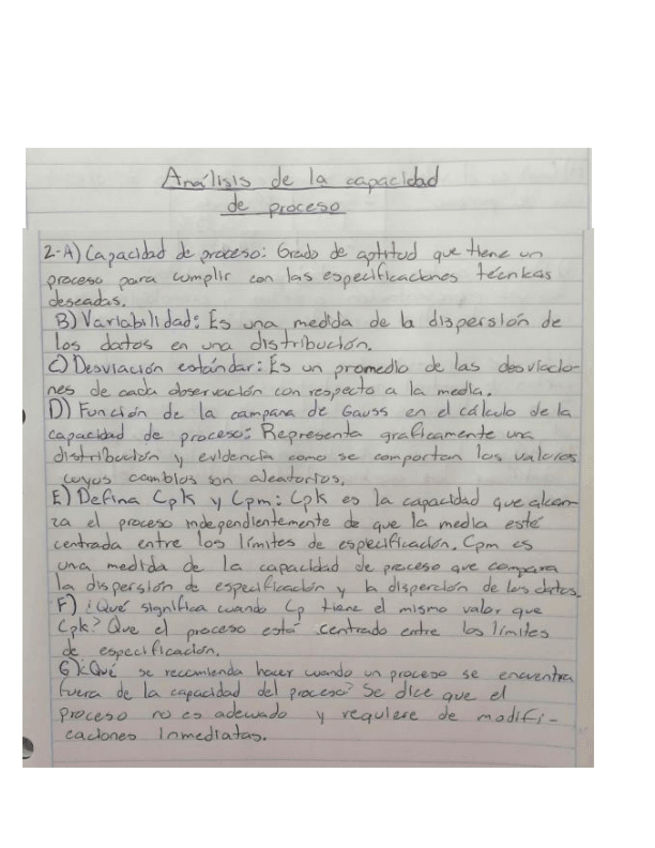 Análisis de la capacidad
de proceso
2-A) Capacidad de proceso: Grado de aptitud que tiene un
proceso para cumplir con las especificaciones técnicas
deseadas.
B) Variabilidad: Es una medida de la dispersión de
los datos en una distribución.
C) Desviación estándar: Es un promedio de las desviacio-
nes de cada observación con respecto a la media.
D) Función de la campana de Gauss en el cálculo de la
capacidad de proceso: Representa graficamente una
distribución y evidencia como se comportan los valores
cuyos cambios son aleatorios.
E) Defina Cpk y Cpm: Cpk es la capacidad que alcan-
za el proceso independientemente de que la media esté
centrada entre los límites de especificación. Cpm es
una medida de la capacidad de proceso que compara
la dispersión de especificación y la disperción de los datos.
F) ¿Qué significa cuando Cp tiene el mismo valor que
Cpk? Que el proceso está centrado entre los límites
de especificación.
G) ¿Qué se recomienda hacer cuando un proceso se encuentra
fuera de la capacidad del proceso? Se dice que el
proceso no es adecuado y requiere de modifi-
caciones inmediatas.